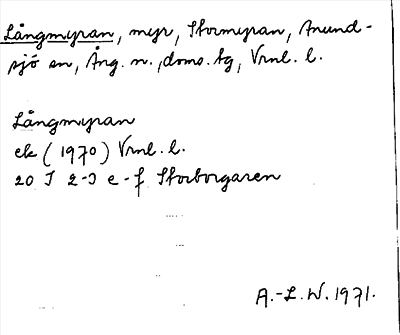 Långmyran, myr, Stormyran, Anund-
sjö sn, Ång. n., doms. tg, Vrnl. l.
Långmyran
ek (1970) Vrnl. l.
20 I 2-3 e-f Storborgaren
A.-L. W. 1971.